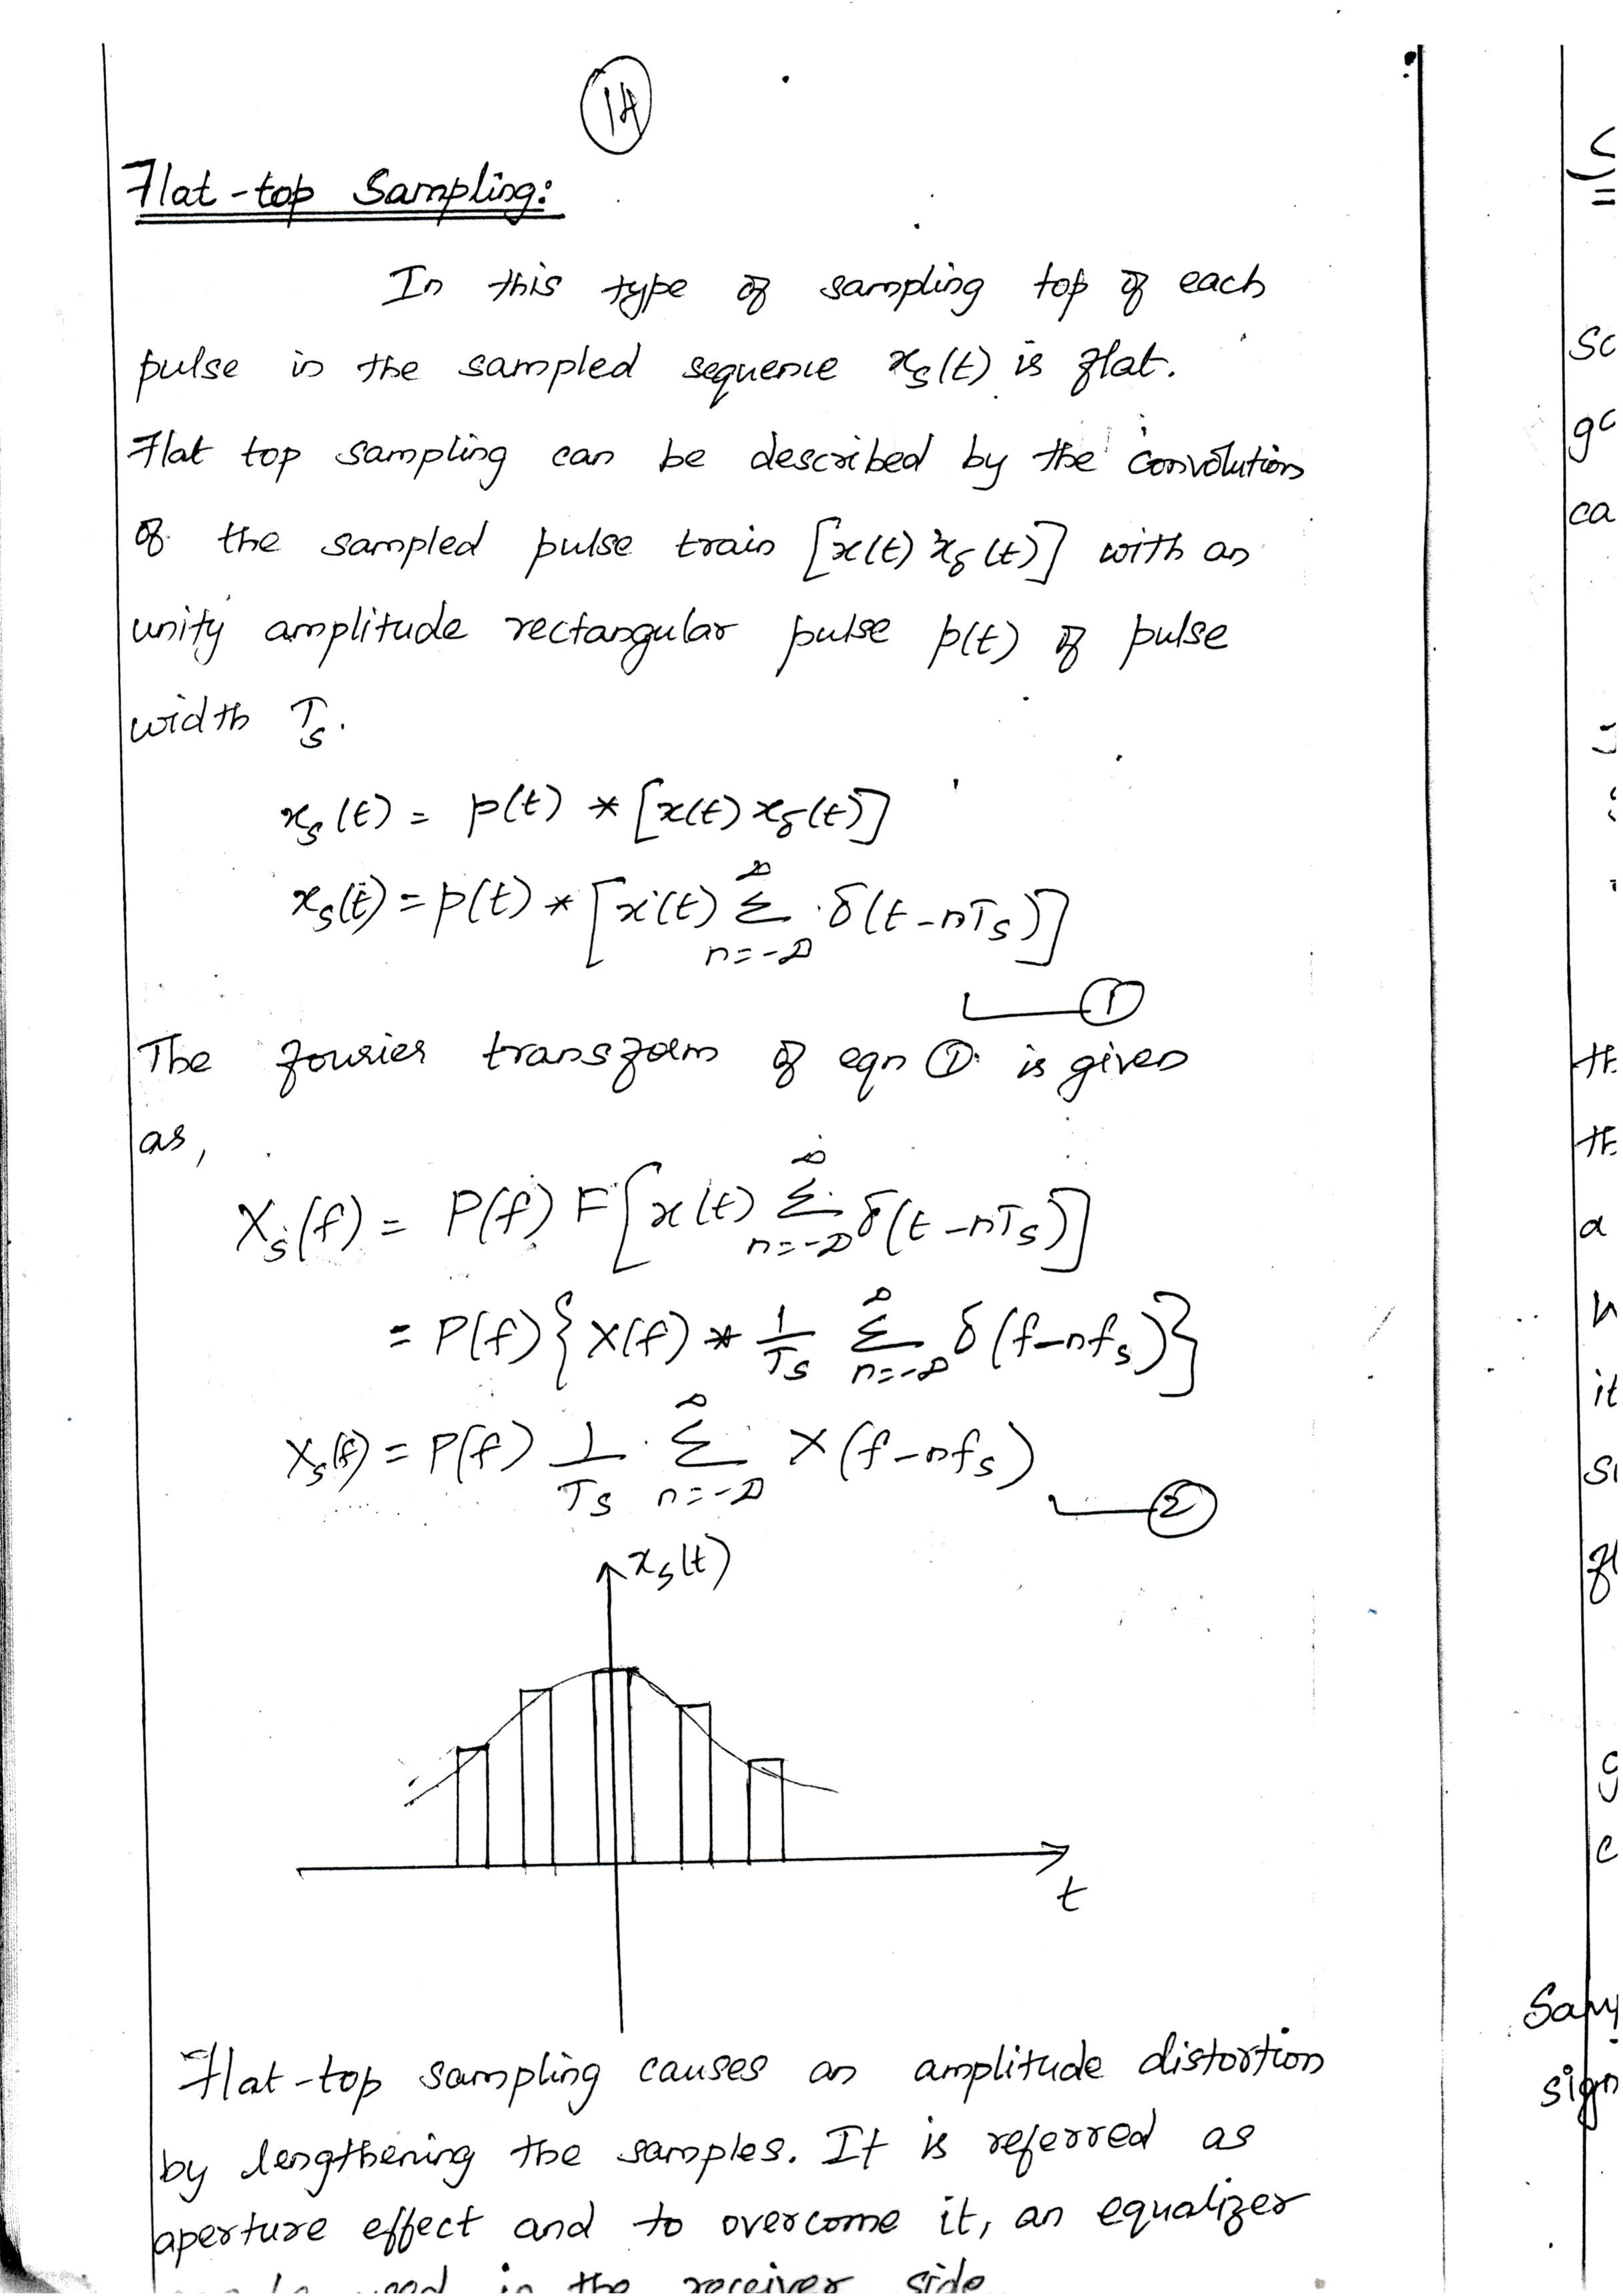 14
Flat-top Sampling:
In this type of sampling top of each
pulse in the sampled sequence xₛ(t) is flat.
Flat top sampling can be described by the convolution
of the sampled pulse train [x(t) x_δ(t)] with an
unity amplitude rectangular pulse p(t) of pulse
width Tₛ.
xₛ(t) = p(t) * [x(t) x_δ(t)]
xₛ(t) = p(t) * [x(t) ∑_{n=-∞}^{∞} δ(t-nTₛ)]
①
The fourier transform of eqn ① is given
as,
Xₛ(f) = P(f) F[x(t) ∑_{n=-∞}^{∞} δ(t-nTₛ)]
= P(f) {X(f) * 1/Tₛ ∑_{n=-∞}^{∞} δ(f-nfₛ)}
Xₛ(f) = P(f) 1/Tₛ ∑_{n=-∞}^{∞} X(f-nfₛ)
②
xₛ(t)
t
Flat-top sampling causes an amplitude distortion
by lengthening the samples. It is referred as
aperture effect and to overcome it, an equalizer
used in the receiver side